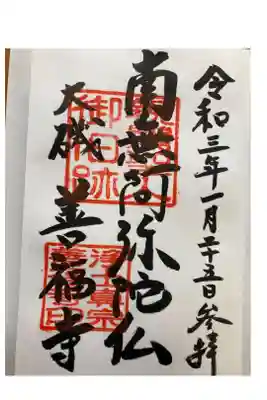 令和三年一月二十五日参拝
南無阿弥陀仏
大磯 善福寺
御旧跡
浄土真宗